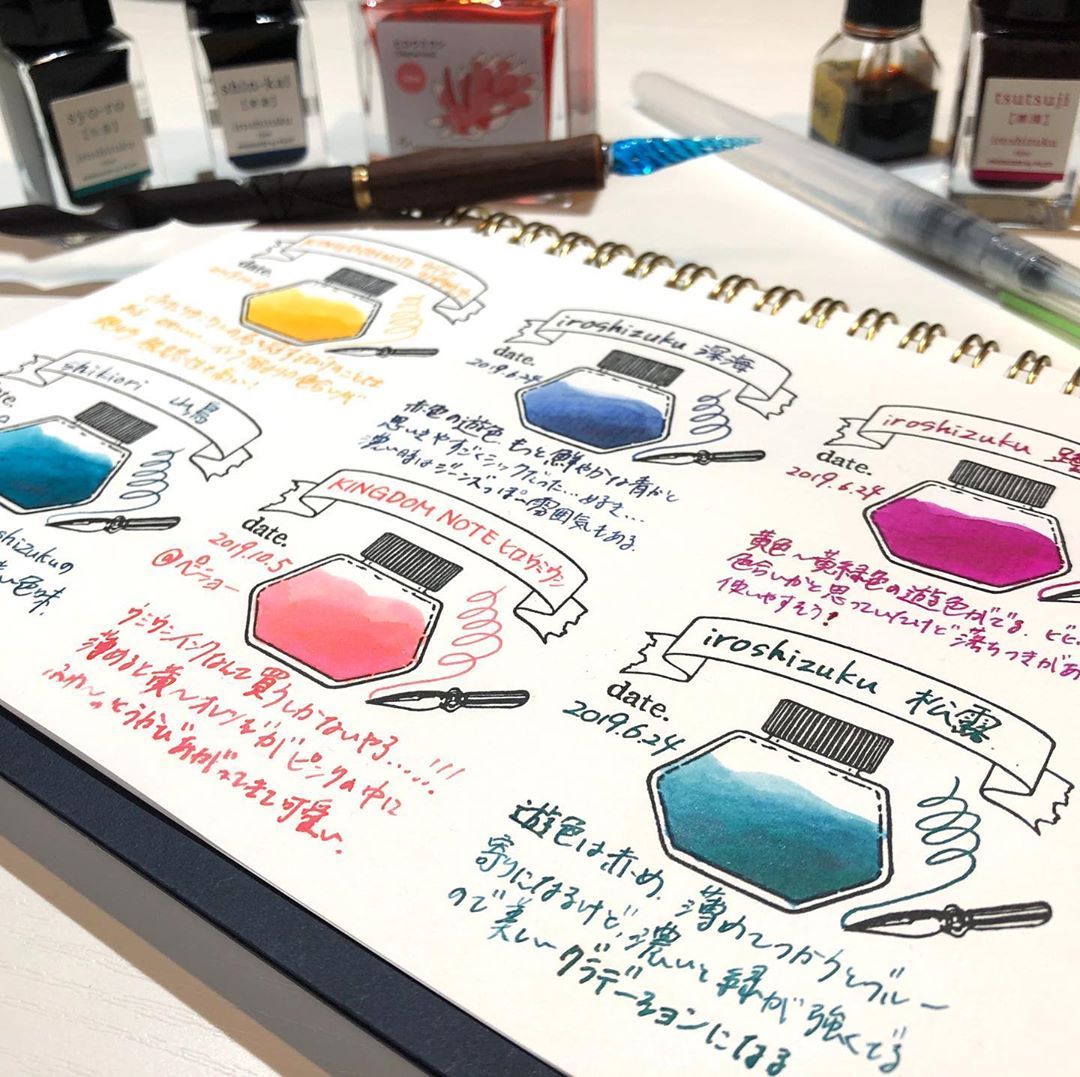 syo-ro
[松露]
iroshizuku
shin-kai
[深海]
iroshizuku
ヒロウミウシ
tsutsuji
[躑躅]
iroshizuku
KINGDOM NOTE
date.
iroshizuku 深海
date.
2019.6.24
赤色の遊色もっと鮮やかな青かと
思いきやすごくシックだった…好き…
濃い時はジーンズっぽい雰囲気もある.
iroshizuku
date.
2019.6.24
黄色〜黄緑色の遊色がでる.
色合いかと思っていたけど落ちつきがあ
使いやすそう!
shikiori 山鳥
date.
shizukuの
色味.
KINGDOM NOTE ヒロウミウシ
date.
2019.10.5
@ペンショー
ウミウシインクなんて買うしかないやろ.....!!!
薄めると黄〜オレンジがピンクの中に
ふわ〜っとうかびあがってきて可愛い.
iroshizuku 松露
date.
2019.6.24
遊色は赤め.薄めてつかうとブルー
寄りになるけど、濃いと緑が強くでる
ので美しいグラデーションになる